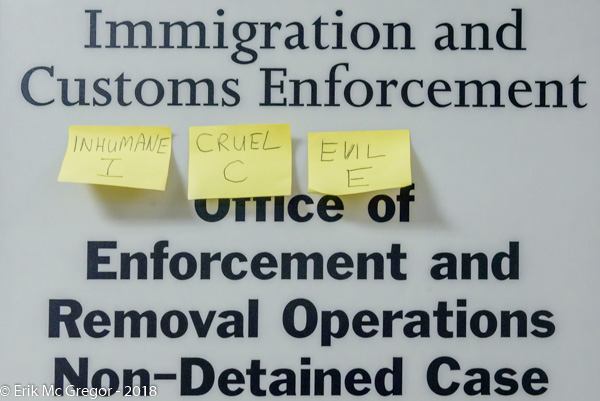 Immigration and
Customs Enforcement
INHUMANE
I
CRUEL
C
EVIL
E
Office of
Enforcement and
Removal Operations
Non-Detained Case
© Erik Mc Gregor - 2018